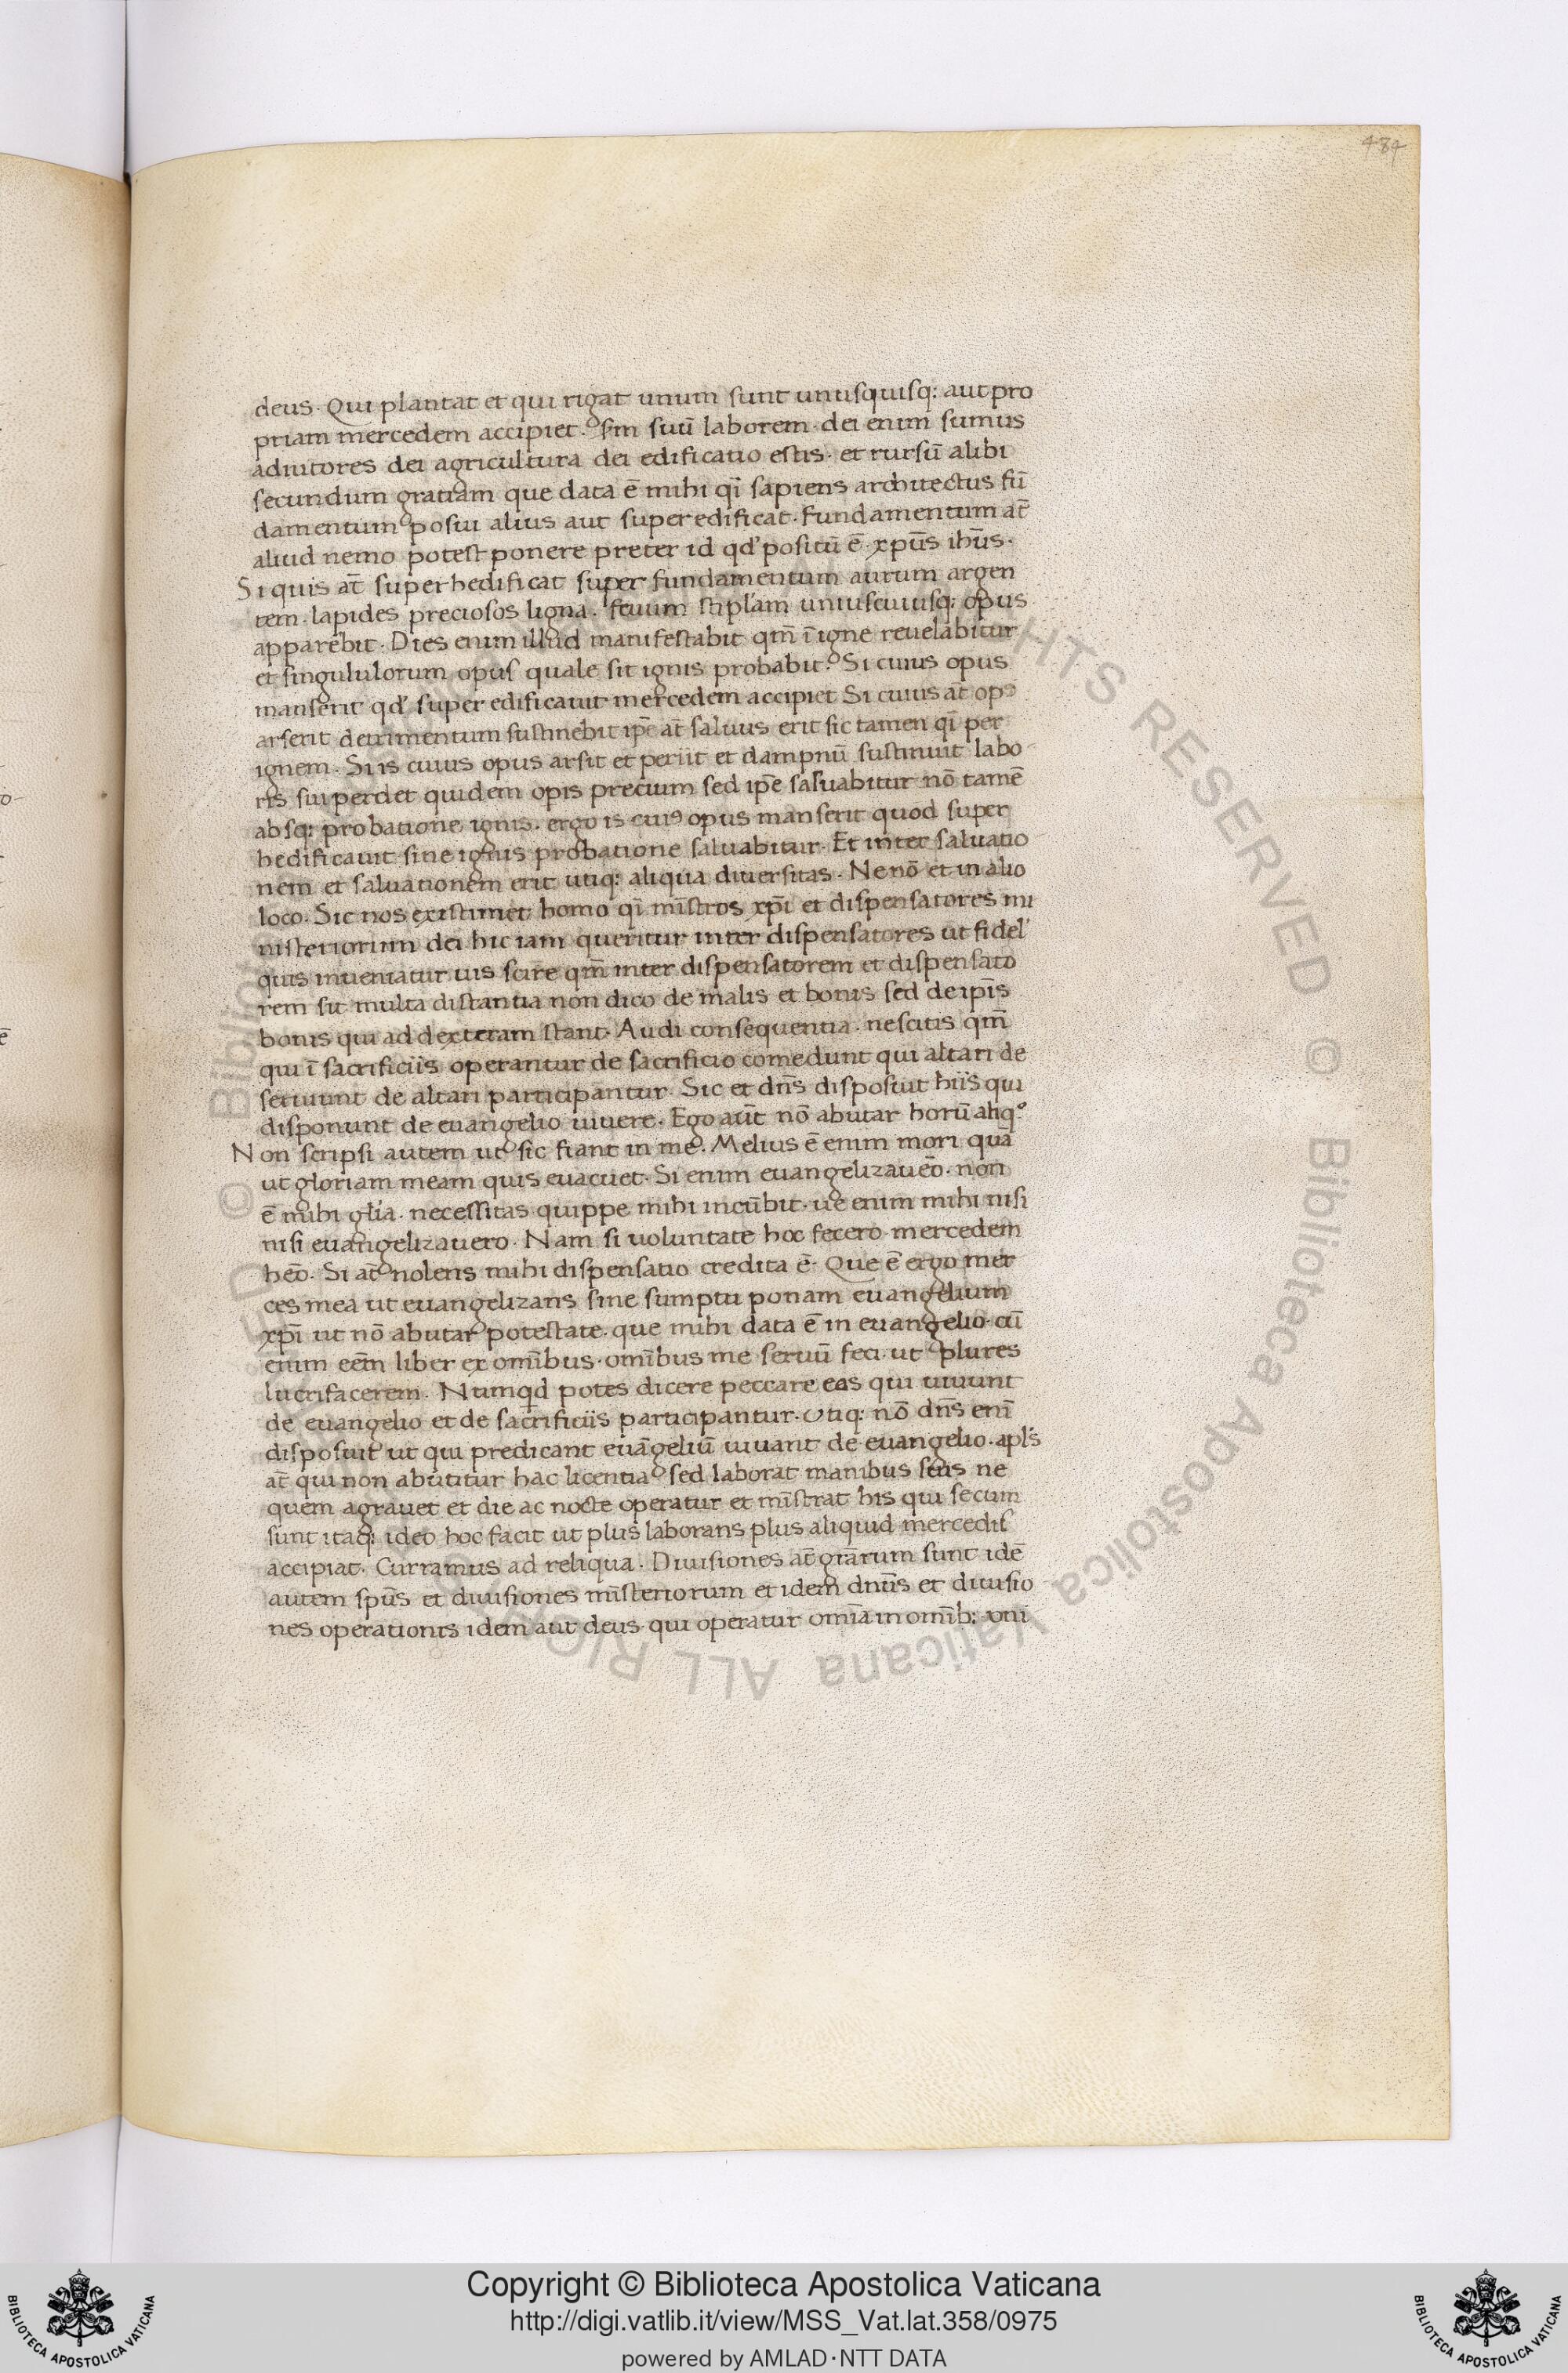 484
deus. Qui plantat et qui rigat unum sunt unusquisq: aut pro
priam mercedem accipiet. sm̄ suū laborem. dei enim sumus
adiutores dei agricultura dei edificatio estis. et rursū alibi
secundum gratiam que data ē mihi qī sapiens architectus fū
damentum posui alius aut superedificat. Fundamentum at̄
aliud nemo potest ponere preter id qd' positū ē. xp̄us ih̄us.
Si quis at̄ superhedificat super fundamentum aurum argen
tem. lapides preciosos ligna. fenum stipl'am uniuscuiusq: opus
apparebit. Dies enim illud manifestabit qm̄ ī igne reuelabitur
et singululorum opus quale sit ignis probabit. Si cuius opus
manserit qd' super edificauit mercedem accipiet Si cuius at̄ opꝰ
arserit detrimentum sustinebit ip̄e at̄ saluus erit sic tamen qī per
ignem. Si is cuius opus arsit et periit et dampnū sustinuit labo
ris sui perdet quidem opis precium sed ip̄e saluabitur nō tamē
absq: probatione ignis. ergo is cuiꝰ opus manserit quod super
hedificauit sine ignis probatione saluabitur. Et inter saluatio
nem et saluationem erit utiq: aliqua diuersitas. Ne nō et in alio
loco. Sic nos existimet homo qī mīstros xp̄i et dispensatores mi
nisteriorum dei hic iam queritur inter dispensatores ut fidel'
quis inueniatur uis scire qm̄ inter dispensatorem et dispensato
rem sit multa distantia non dico de malis et bonis sed de ip̄is
bonis qui ad dexteram stant. Audi consequentia. nescitis qm̄
qui ī sacrificiis operantur de sacrificio comedunt qui altari de
seruiunt de altari participantur. Sic et dn̄s disposuit hiis qui
disponunt de euangelio uiuere. Ego aūt nō abutar horū aliqͦ
Non scripsi autem ut sic fiant in me. Melius ē enim mori quā
ut gloriam meam quis euacuet. Si enim euangelizaueō. non
ē mihi gl'ia. necessitas quippe mihi incūbit. ue enim mihi nisi
nisi euangelizauero. Nam si uoluntate hoc fecero mercedem
heō. Si at̄ nolens mihi dispensatio credita ē. Que ē ergo mer
ces mea ut euangelizans sine sumptu ponam euangelium
xp̄i ut nō abutar potestate. que mihi data ē in euangelio. cū
enim eēm liber ex omībus. omībus me seruū feci. ut plures
lucrifacerem. Numqd potes dicere peccare eas qui uiuunt
de euangelio et de sacrificiis participantur. Utiq: nō dn̄s enī
disposuit ut qui predicant euāgeliū uiuant de euangelio. apl's
at̄ qui non abutitur hac licentia sed laborat manibus suis ne
quem agrauet et die ac nocte operatur et mīstrat his qui secum
sunt itaq: ideo hoc facit ut plus laborans plus aliquid mercedis
accipiat. Curramus ad reliqua. Diuisiones at̄ gr̄arum sunt idē
autem sp̄us et diuisiones mīsteriorum et idem dn̄us et diuisio
nes operationis idem aut deus. qui operatur omīa in omīb: uni
© Biblioteca Apostolica Vaticana ALL RIGHTS RESERVED
Copyright © Biblioteca Apostolica Vaticana
http://digi.vatlib.it/view/MSS_Vat.lat.358/0975
powered by AMLAD·NTT DATA
BIBLIOTECA APOSTOLICA VATICANA
BIBLIOTECA APOSTOLICA VATICANA